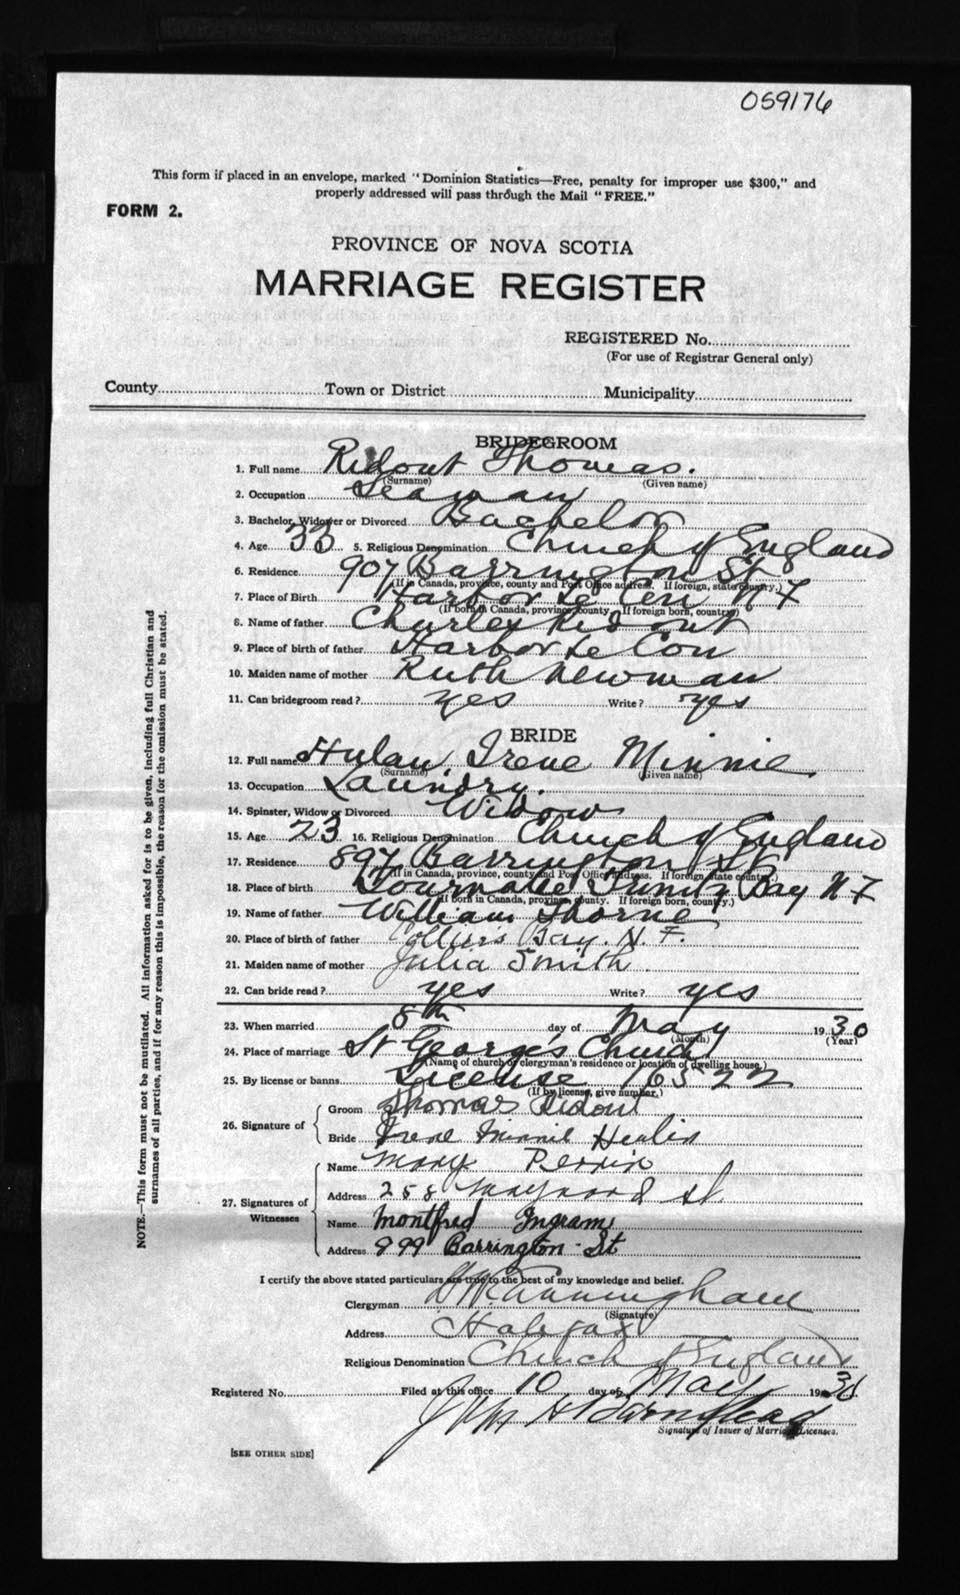 059176
This form if placed in an envelope, marked "Dominion Statistics—Free, penalty for improper use $300," and
properly addressed will pass through the Mail "FREE."
FORM 2.
PROVINCE OF NOVA SCOTIA
MARRIAGE REGISTER
REGISTERED No.
(For use of Registrar General only)
County Town or District Municipality
BRIDEGROOM
1. Full name Ridout Thomas.
(Surname) (Given name)
2. Occupation Seaman
3. Bachelor, Widower or Divorced Bachelor
4. Age 33 5. Religious Denomination Church of England
6. Residence 907 Barrington St
(If in Canada, province, county and Post Office address. If foreign, state country.)
7. Place of Birth Harbor Le Cou N F
(If born in Canada, province, county. If foreign born, country)
8. Name of father Charles Ridout
9. Place of birth of father Harbor Le Cou
10. Maiden name of mother Ruth Newman
11. Can bridegroom read? yes Write? yes
BRIDE
12. Full name Hulan, Irene Minnie
(Surname) (Given name)
13. Occupation Laundry.
14. Spinster, Widow or Divorced Widow
15. Age 23 16. Religious Denomination Church of England
17. Residence 897 Barrington St
(If in Canada, province, county and Post Office address. If foreign state country.)
18. Place of birth Trinity Bay N F
(If born in Canada, province, county. If foreign born, country.)
19. Name of father William Thorne
20. Place of birth of father Colliers Bay. N. F.
21. Maiden name of mother Julia Smith.
22. Can bride read? yes Write? yes
23. When married 8th day of May 1930
(Month) (Year)
24. Place of marriage St George's Church
(Name of church or clergyman's residence or location of dwelling house.)
25. By license or banns License 16522
(If by license, give number.)
26. Signature of Groom Thomas Ridout
Bride Irene Minnie
27. Signatures of Witnesses Name Mary Perrin
Address 258 Maynard St
Name Montfred Ingram
Address 999 Barrington St
I certify the above stated particulars are true to the best of my knowledge and belief.
Clergyman Cunningham
(Signature)
Address Halifax
Religious Denomination Church of England
Registered No. Filed at this office 10 day of May 1930
John H Barnstead
Signature of Issuer of Marriage Licenses.
[SEE OTHER SIDE]
NOTE.—This form must not be mutilated. All information asked for is to be given, including full Christian and
surnames of all parties, and if for any reason this is impossible, the reason for the omission must be stated.